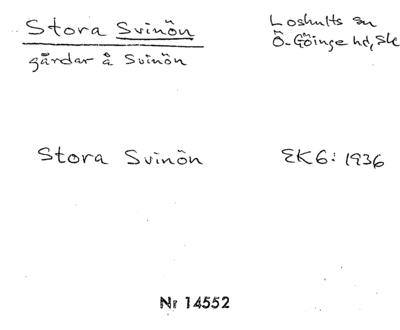 Stora Svinön
gårdar å Svinön
Loshults sn
Ö. Göinge hd, Sk
Stora Svinön
EK6: 1936
Nr 14552